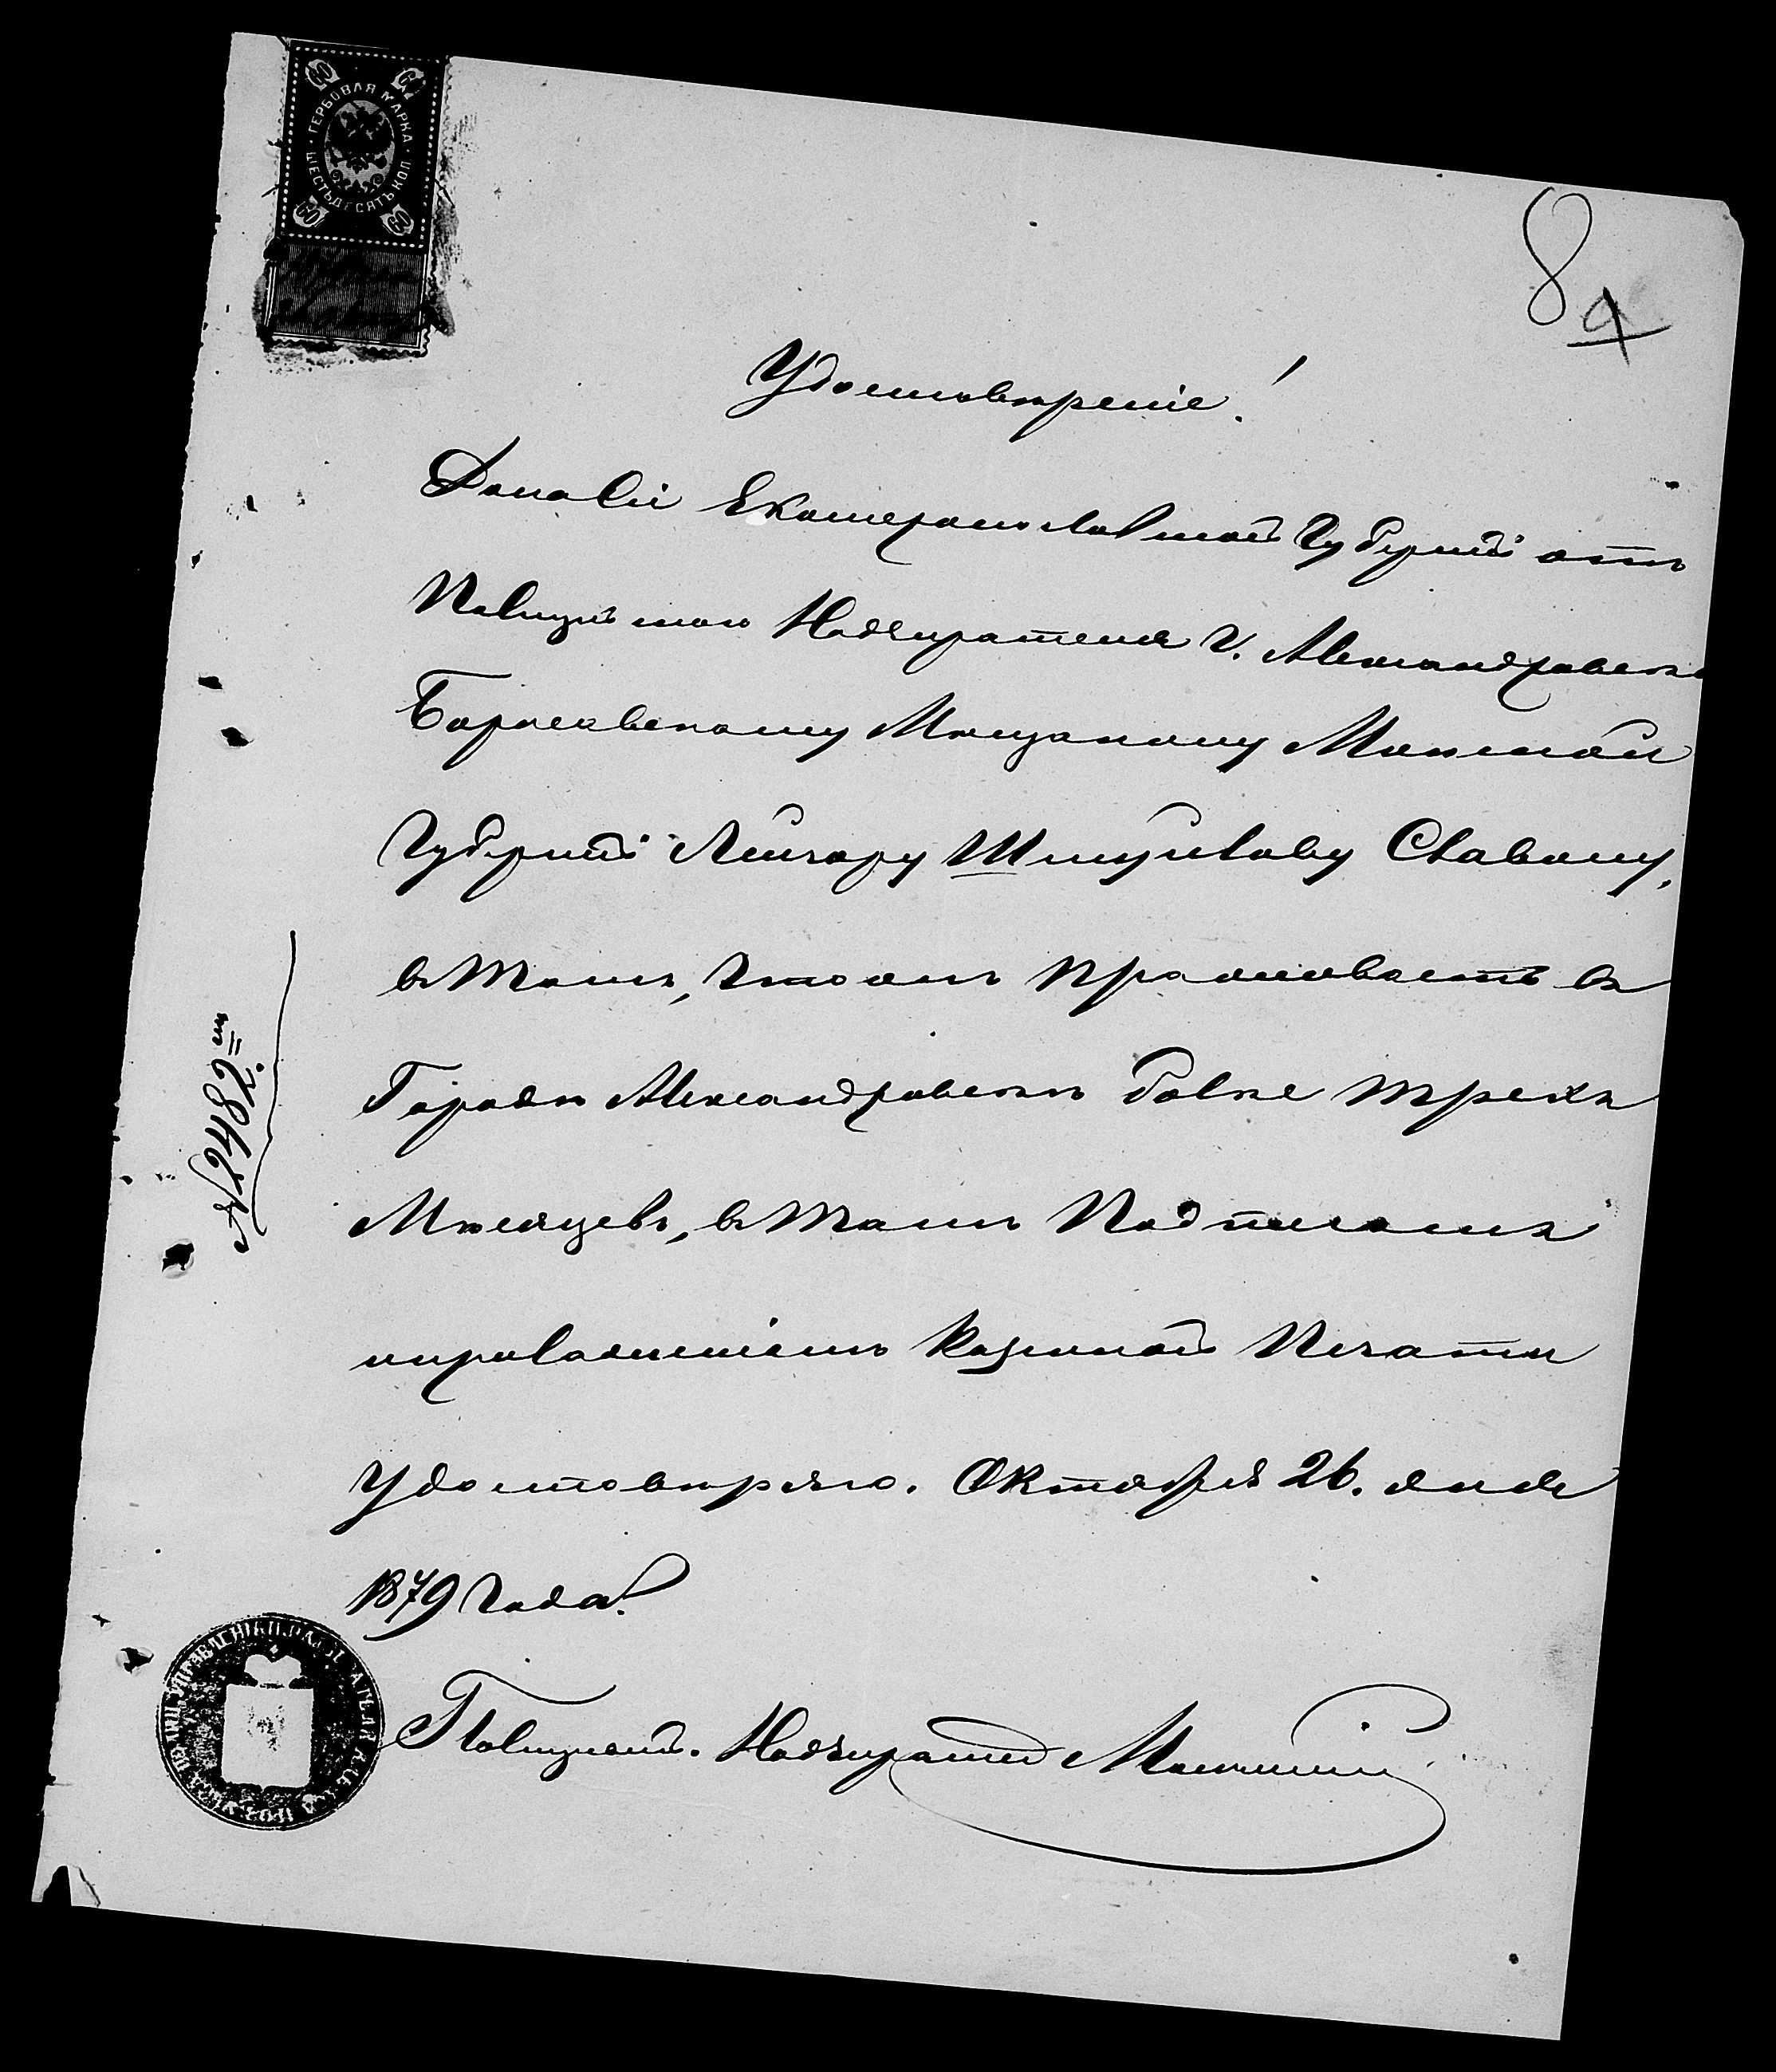 ГЕРБОВАЯ МАРКА
ШЕСТЬДЕСЯТЪ КОП
60 60 60 60
8
Удостовѣреніе!
Дано Сіе Екатеринославской Губерніи отъ
Полицейскаго Надзирателя г. Александровска
Борисовскому Мѣщанину Минской
Губерніи Лейзару Шмуйлову Славону,
въ томъ, что онъ проживаетъ въ
Городѣ Александровскѣ болѣе трехъ
Мѣсяцевъ, въ томъ Подписомъ
и приложеніемъ Казенной Печати
Удостовѣряю. Октября 26. дня
1879 Года.
Полицейск. Надзиратель
№ 2482.